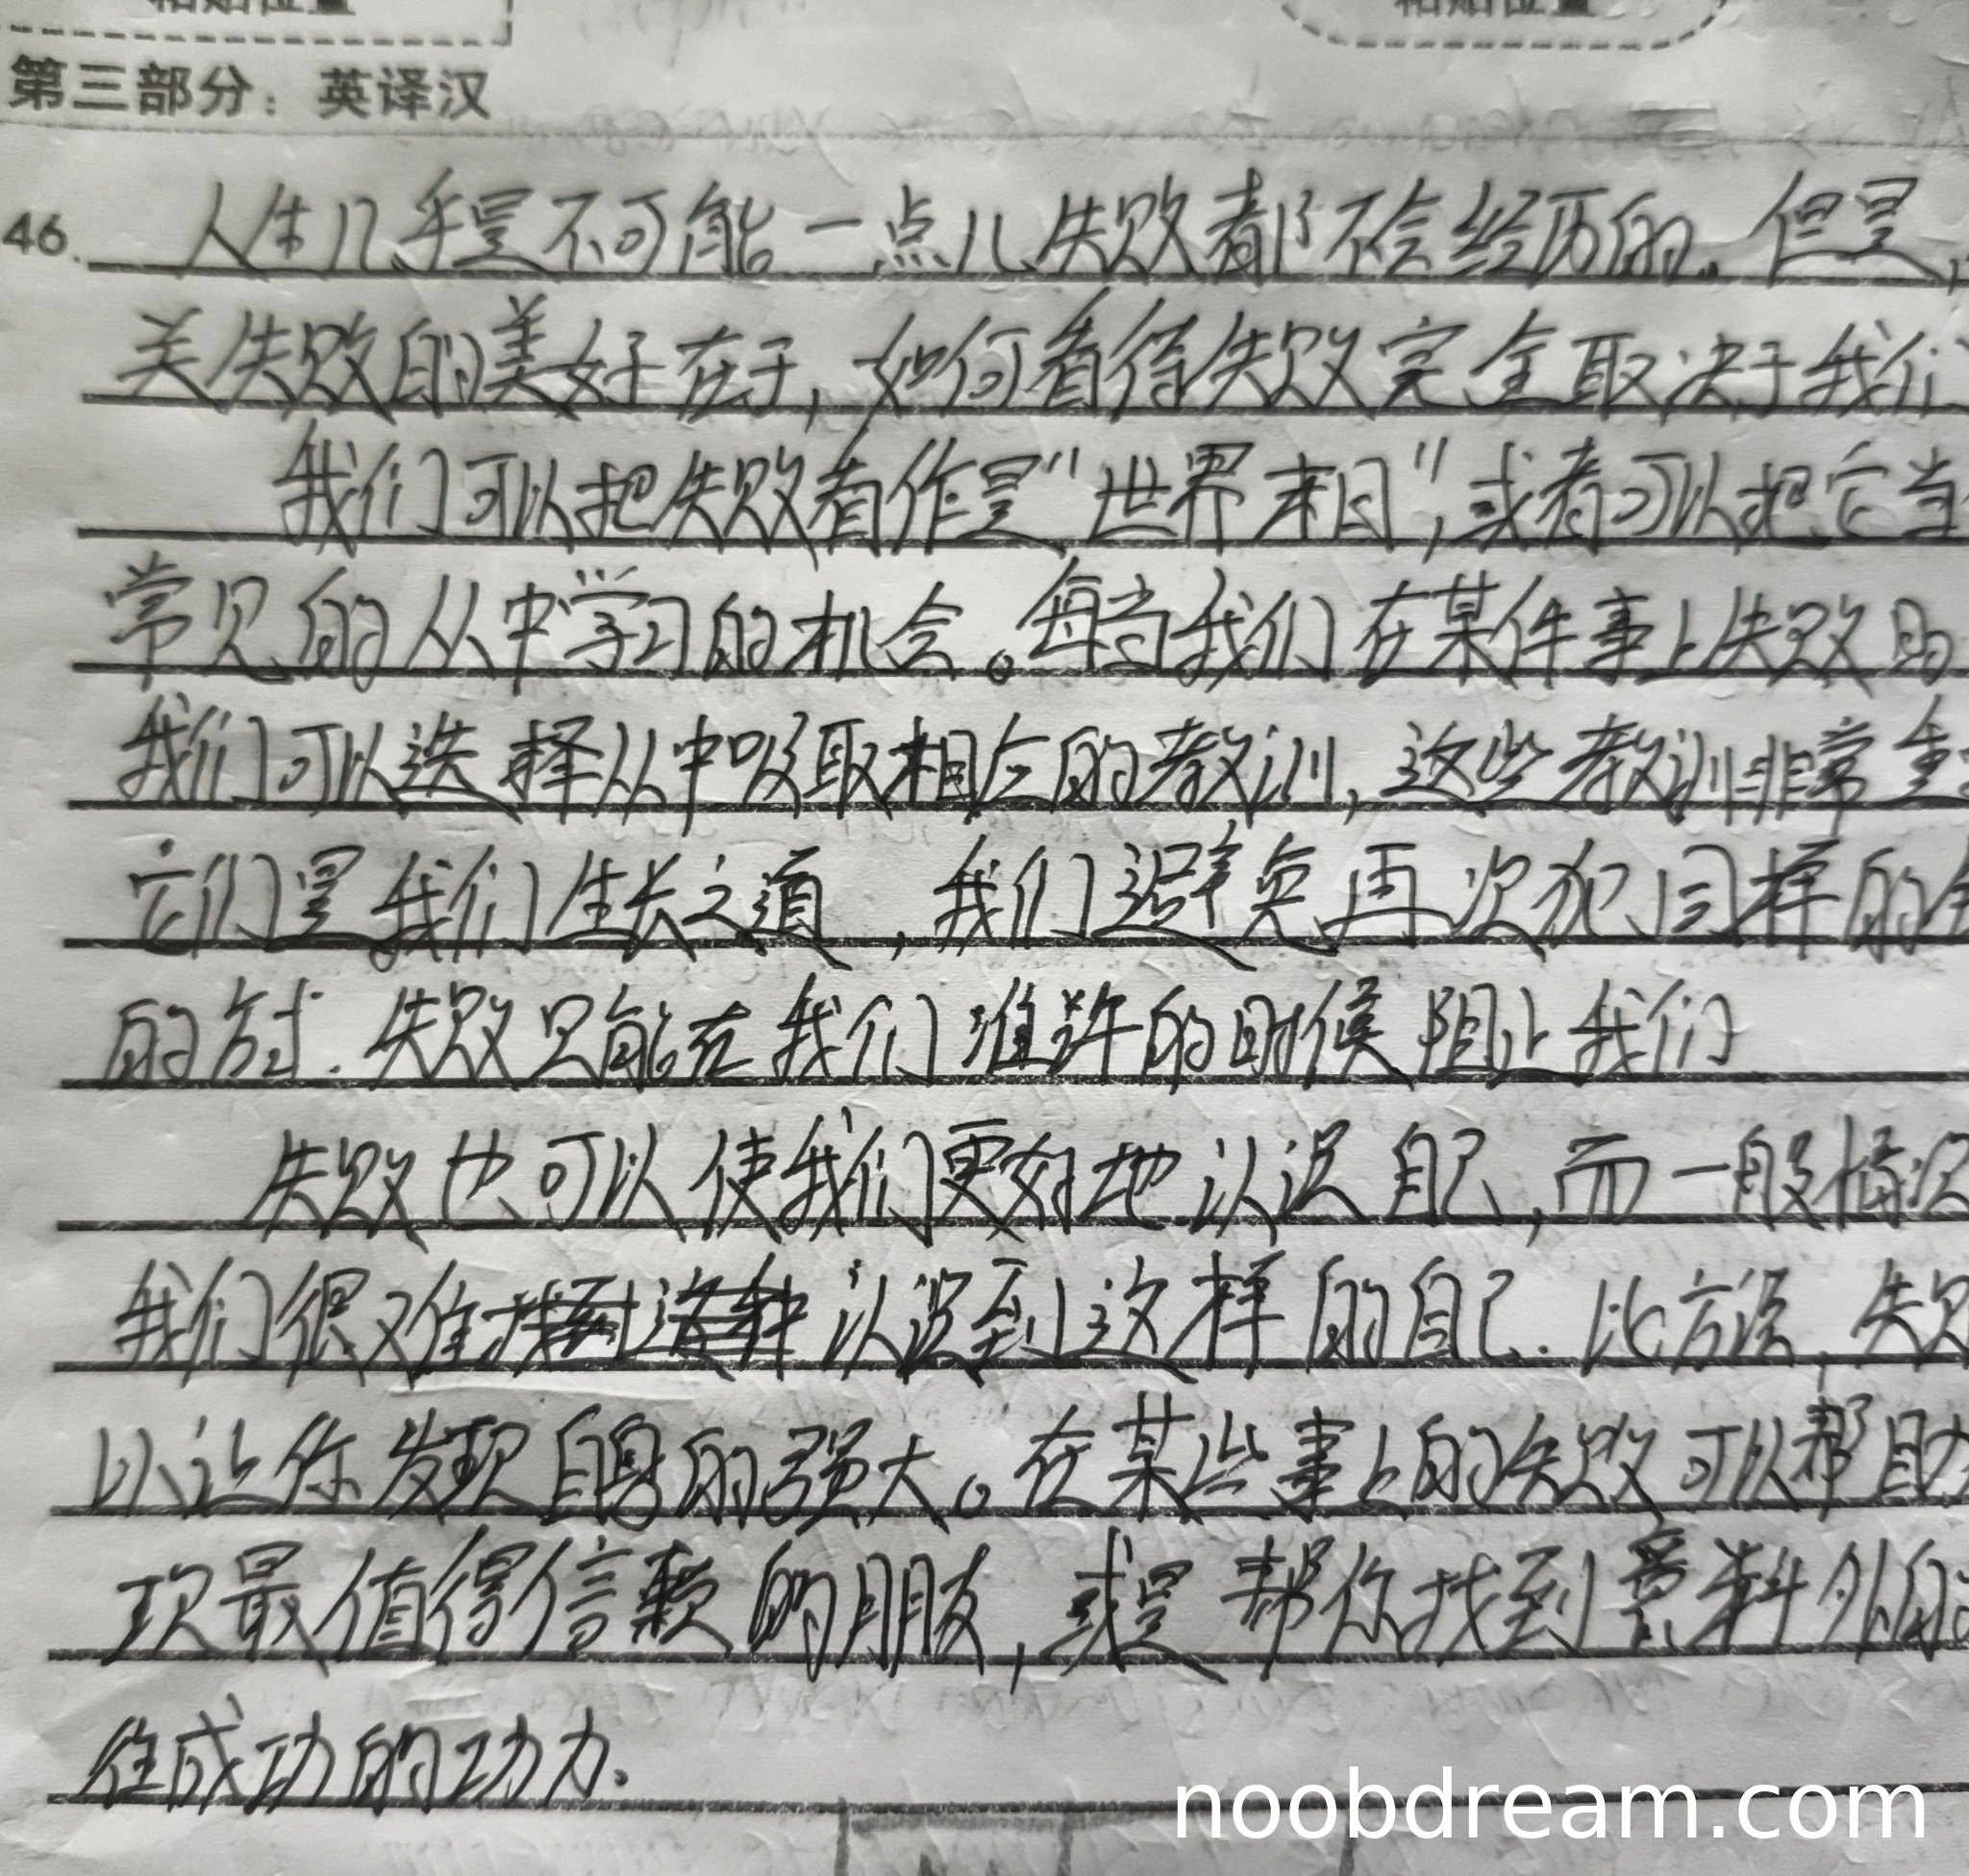 第三部分：英译汉
46. 人生几乎是不可能一点儿失败都不会经历的. 但是,
关失败的美好在于, 如何看待失败完全取决于我们
我们可以把失败看作是"世界末日", 或者可以把它当
常见的从中学习的机会。每当我们在某件事上失败的
我们可以选择从中吸取相应的教训, 这些教训非常重
它们是我们生长之道, 我们避免再次犯同样的
的方式. 失败只能在我们准许的时候阻止我们
失败也可以使我们更好地认识自己, 而一般情况
我们很难认识到这样的自己. 比方说, 失
以让你发现自身的强大。在某些事上的失败可以帮助
现最值得信赖的朋友, 或是帮你找到意料外的
往成功的功力.
noobdream.com